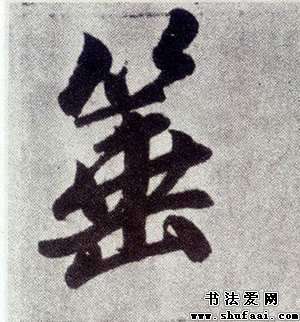 箠
书法爱网
www.shufaai.com